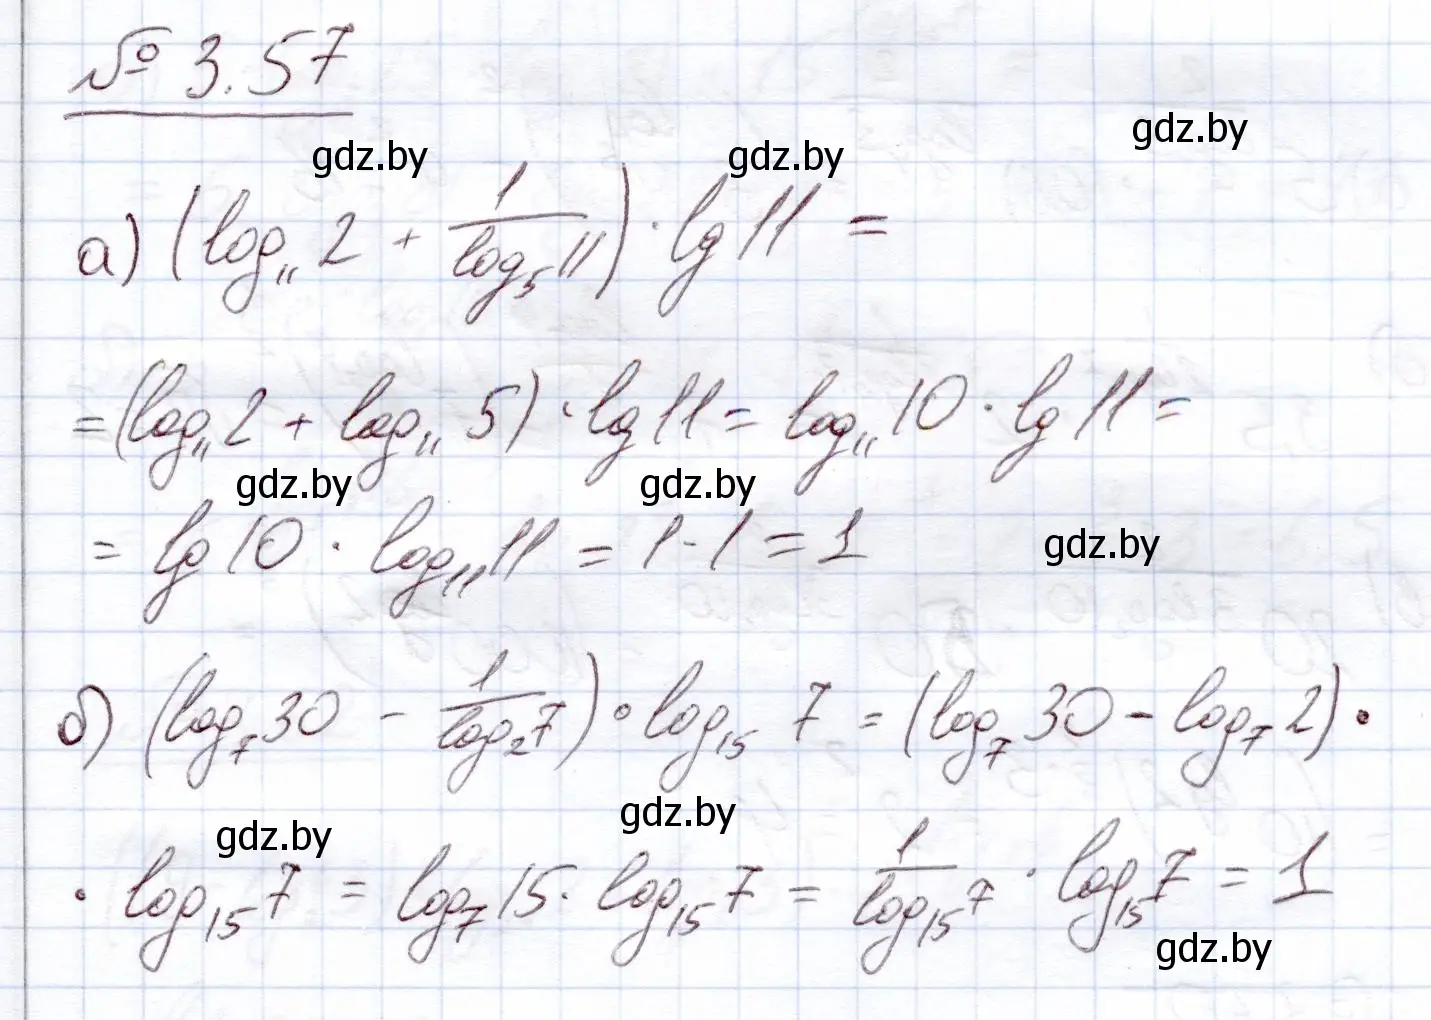 № 3.57
gdz.by
gdz.by gdz.by
а) (log₁₁ 2 + 1/log₅ 11) · lg 11 =
= (log₁₁ 2 + log₁₁ 5) · lg 11 = log₁₁ 10 · lg 11 =
gdz.by gdz.by
= lg 10 · log₁₁ 11 = 1 · 1 = 1
gdz.by
б) (log₇ 30 - 1/log₂ 7) · log₁₅ 7 = (log₇ 30 - log₇ 2) ·
gdz.by gdz.by
· log₁₅ 7 = log₇ 15 · log₁₅ 7 = 1/log₁₅ 7 · log₁₅ 7 = 1
gdz.by